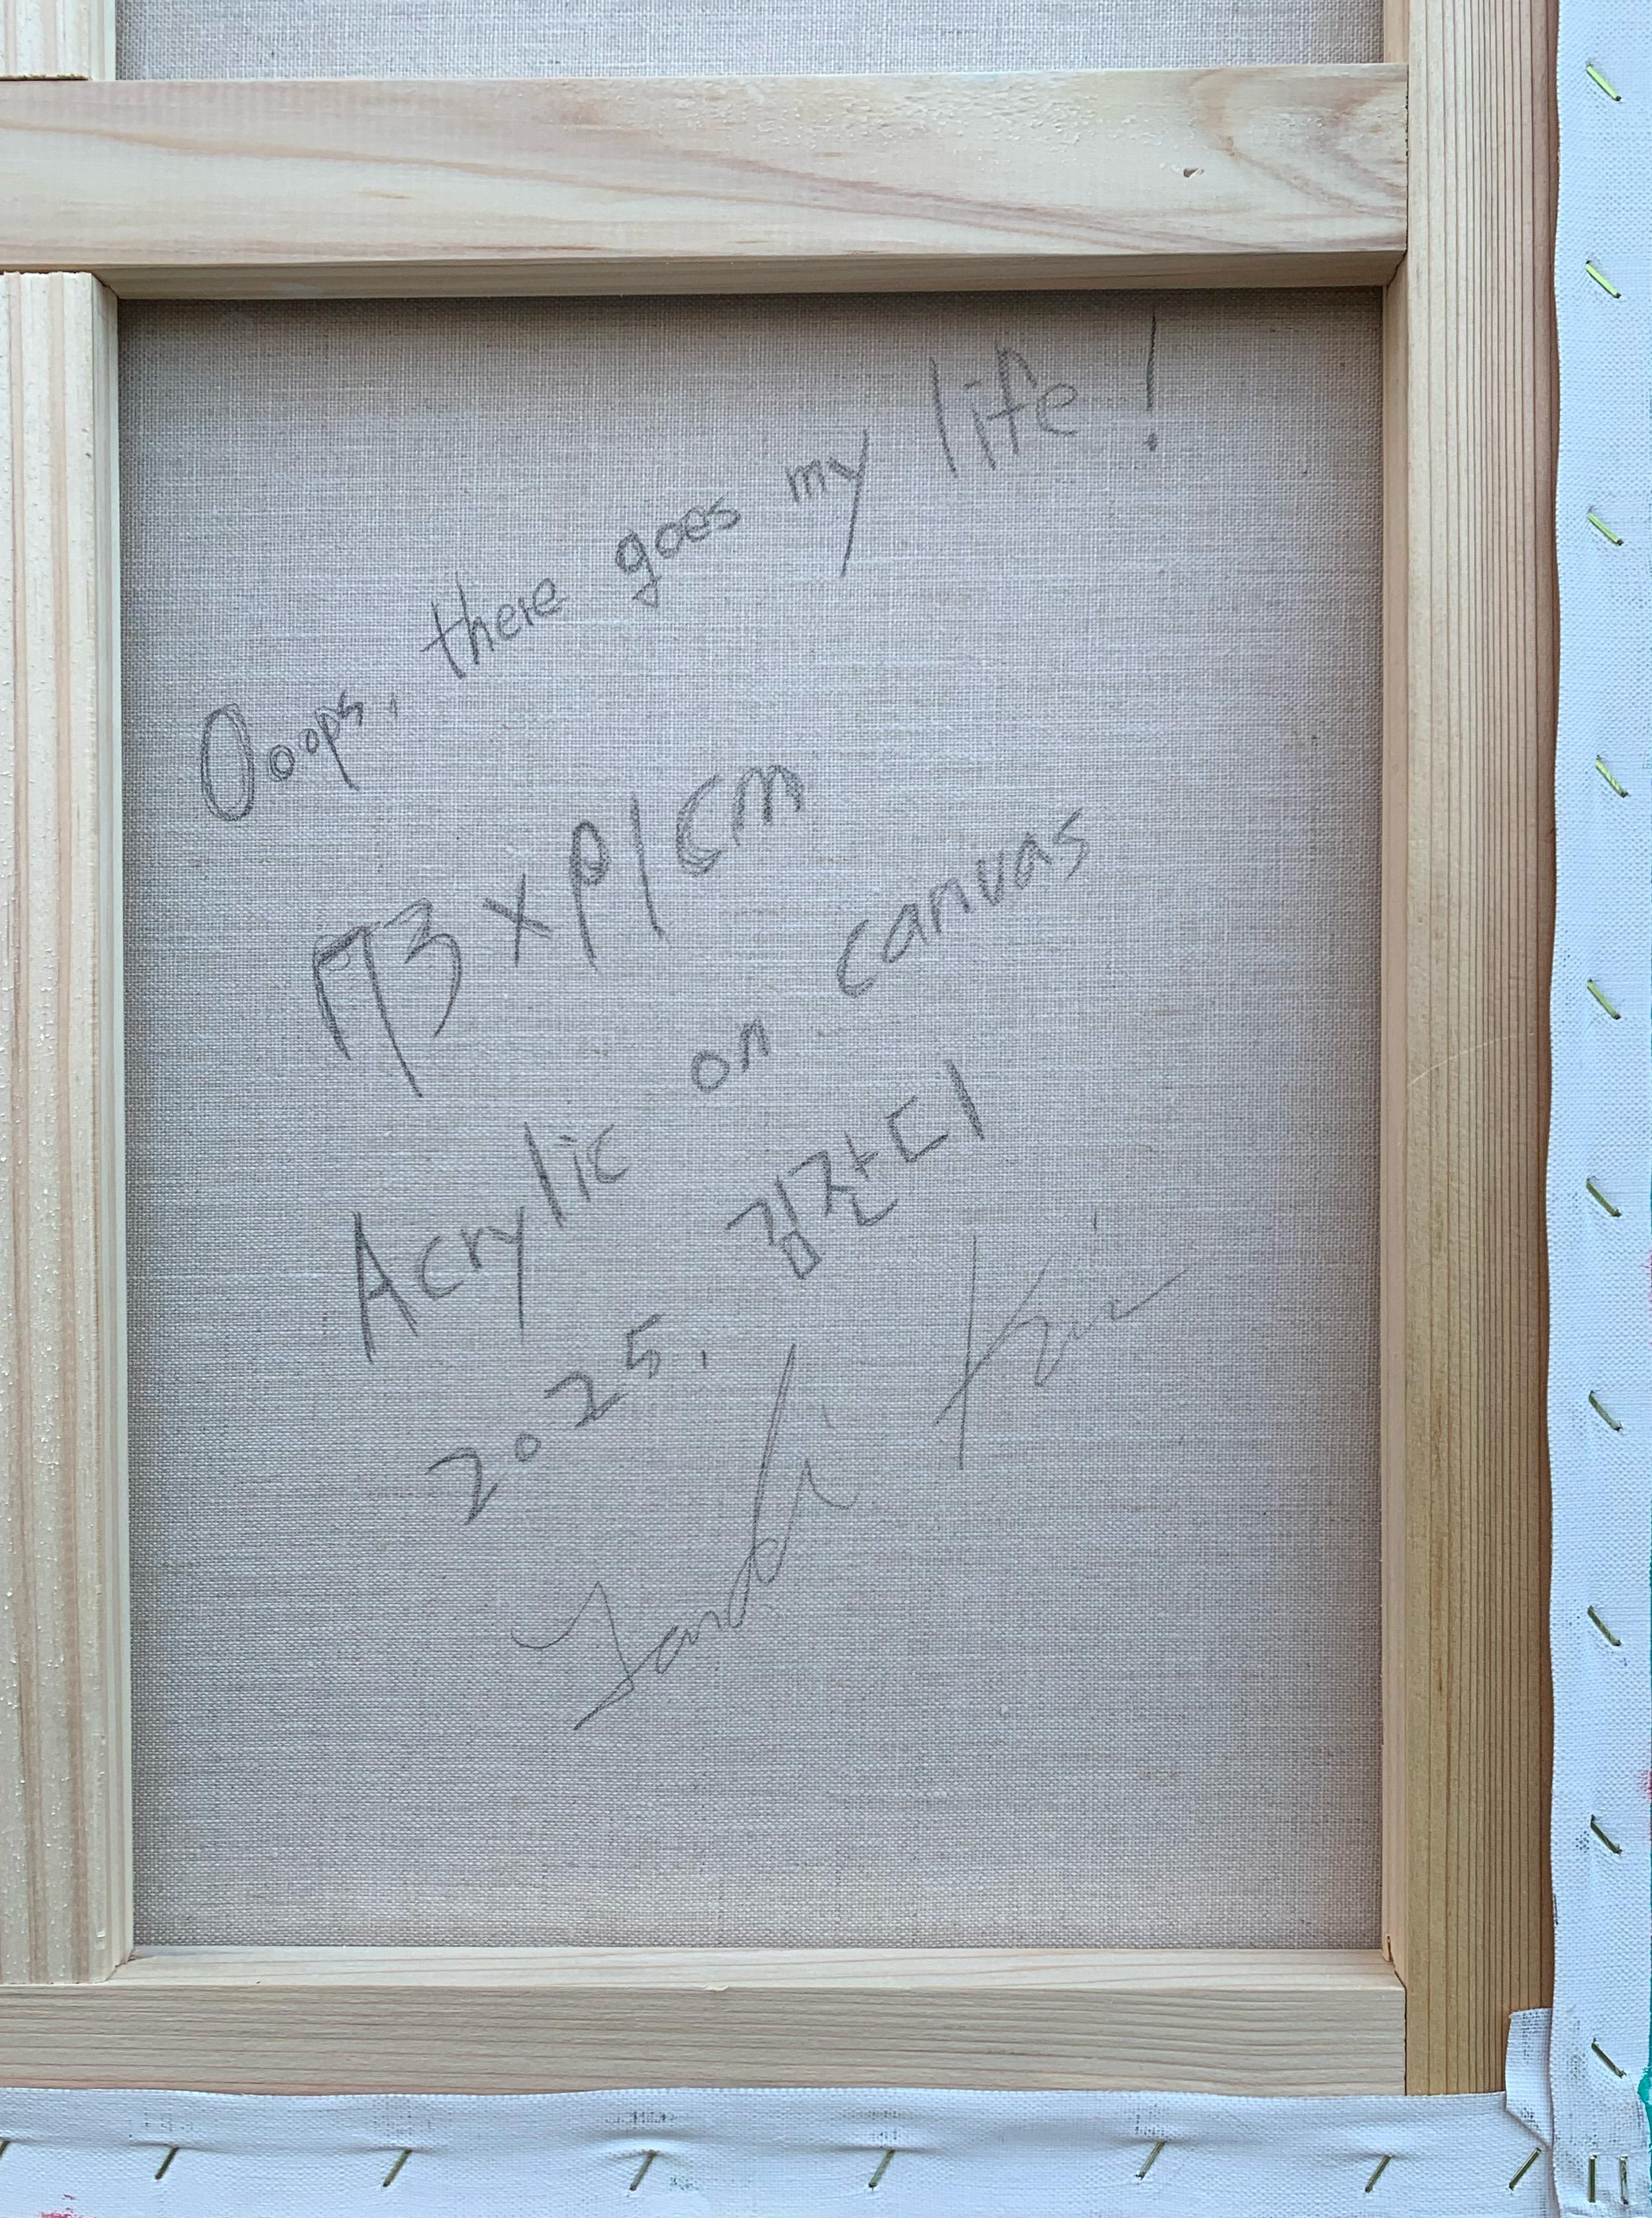 Ooops, there goes my life!
73 x 91cm
Acrylic on canvas
2025. 김잔디
Jandi Kim